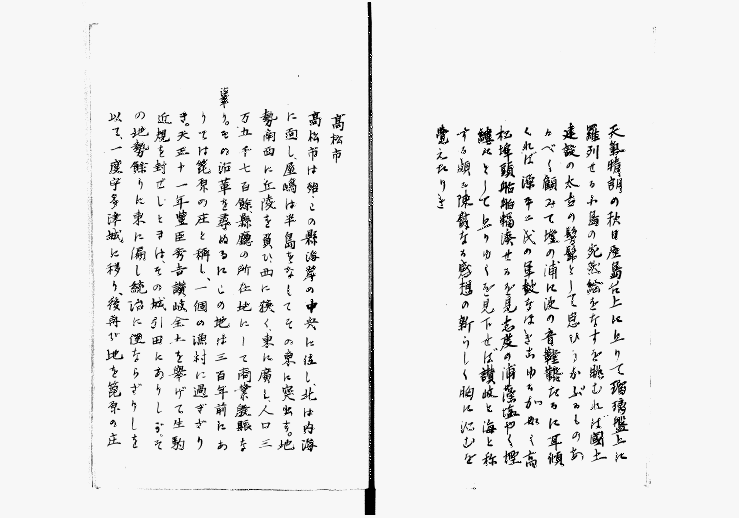 天気晴朗の秋日屋島山上に上りて瑠璃盤上に
羅列せる内島の宛然絵をなすを眺むれば国土
建設の太古の髣髴として思ひうかぶるものあ
るべく顧みて壇の浦に波の音鞺鞳たるに耳傾
くれば源平二代の軍歌なほぎあゆるが如く高
松埠頭船舶輻湊せるを見志度の浦藻塩やく煙
縷々として上りゆくを見下せば讃岐と海と称
する頗る陳腐なる感想の新らしく胸に沁むを
覚えたりき
高松市
高松市は殆この縣海岸の中央に位し、北は内海
に面し、屋嶋は半島をなしてその東に突出す。地
勢南西に丘陵を負ひ西に狭く、東に廣し、人口三
万五千七百餘縣廳の所在地にして商業殷賑な
り。その沿革を尋ぬるに、この地は三百年前にあ
りては箆原の庄と稱し、一個の漁村に過ぎざり
き。天正十一年豊臣秀吉讃岐全土を挙げて生駒
近規を封ぜしときは、その城引田にありしが、そ
の地勢餘りに東に漏し統治に便ならざりしを
以て、一度宇多津城に移り、後再び地を箆原の庄